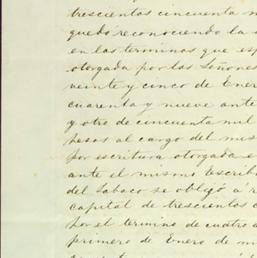 trescientos cincuenta m
quedó reconociendo la s
en los terminos que esp
otorgada por los Señores
veinte y cinco de Ener
cuarenta y nueve ante
y otro de cincuenta mil
pesos al cargo del mis
por escritura otorgada e
ante el mismo escriba
del Tabaco se obligó á r
capital de trescientos c
por el termino de cuatro a
primero de Enero de m